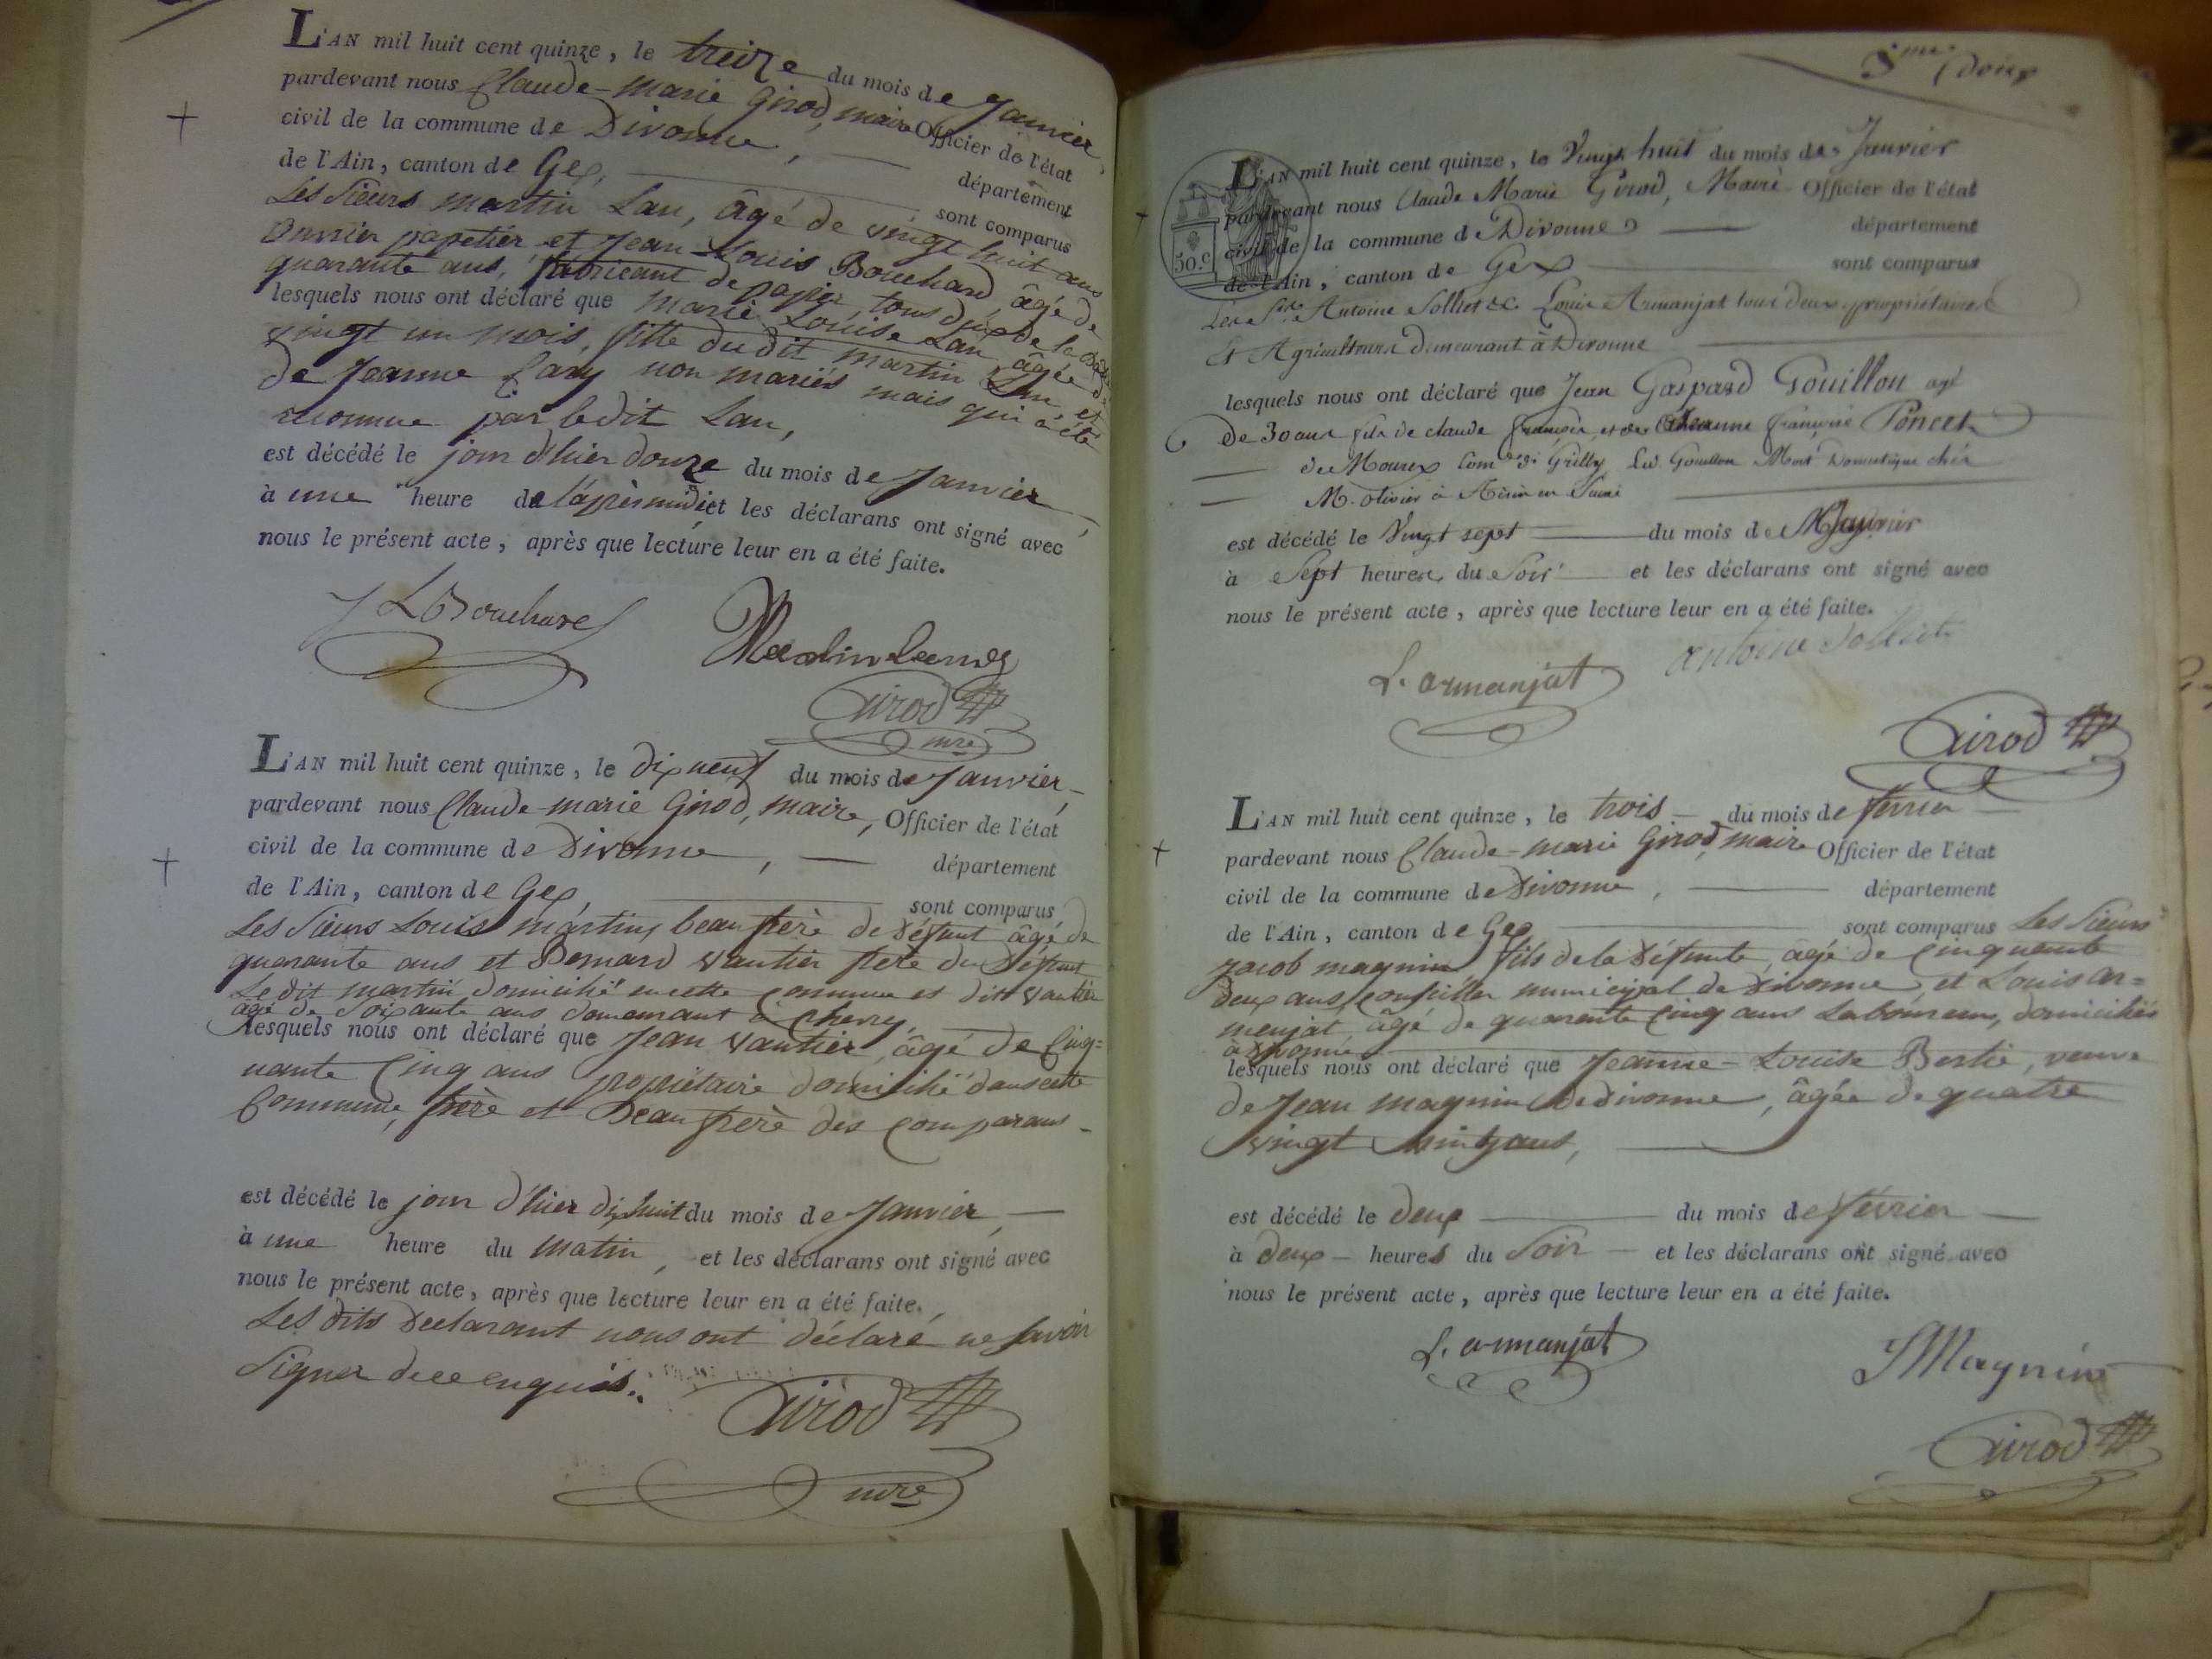 L'AN mil huit cent quinze, le treize du mois de Janvier,
pardevant nous Claude-marie Girod, maire Officier de l'état
civil de la commune de Divonne, département
de l'Ain, canton de Gex, sont comparus
Les Sieurs martin Lau, âgé de vingt huit ans
Ouvrier papetier et Jean-Louis Bouchard, âgé de
quarante ans, fabricant de papier, tous deux de la
lesquels nous ont déclaré que marie Louise Lau, âgée de
vingt un mois, fille dudit martin Lau, et
de Jeanne non mariés mais qui a été
reconnue par ledit Lau,
est décédé le jour d'hier douze du mois de Janvier,
à une heure de l'après midi et les déclarans ont signé avec
nous le présent acte, après que lecture leur en a été faite.
J L Bouchard
Girod
mre
L'AN mil huit cent quinze, le dix neuf du mois de Janvier,
pardevant nous Claude-marie Girod, maire, Officier de l'état
civil de la commune de Divonne, département
de l'Ain, canton de Gex, sont comparus
Les Sieurs Louis martin, beau frère de Défunt âgé de
quarante ans et Bernard Vautier frere du Défunt
Le dit martin domicilié en cette commune et dit Vautier
âgé de Soixante ans demeurant à
lesquels nous ont déclaré que Jean Vautier, âgé de Cinq=
uante Cinq ans propriétaire domicilié dans cette
Commune, frère et Beau frère des comparans
est décédé le jour d'hier dix huit du mois de Janvier,
à une heure du matin, et les déclarans ont signé avec
nous le présent acte, après que lecture leur en a été faite.
Les dits Déclarant nous ont déclaré ne savoir
Signer de ce enquis.
Girod
mre
5me
L'AN mil huit cent quinze, le Vingt huit du mois de Janvier
pardevant nous Claude Marie Girod, Maire Officier de l'état
civil de la commune de Divonne département
50.c
de l'Ain, canton de Gex sont comparus
Les Srs Antoine Solliet & Louis Armanjat tous deux propriétaires
Et Agriculteurs demeurant à Divonne
lesquels nous ont déclaré que Jean Gaspard Gouillou agé
De 30 ans fils de claude françois et de Jeanne françoise Poncet
de Mourex Comne de Grilly Led. Gouillou Mort Domestique chés
M. olivier à
est décédé le Vingt sept du mois de Janvier
à Sept heures du Soir et les déclarans ont signé avec
nous le présent acte, après que lecture leur en a été faite.
L. armanjat antoine Solliet
Girod
L'AN mil huit cent quinze, le trois du mois de février
pardevant nous Claude-marie Girod, maire Officier de l'état
civil de la commune de Divonne, département
de l'Ain, canton de Gex sont comparus Les Sieurs
Jacob magnin fils de la Défunte, âgé de Cinquante
deux ans, Conseiller municipal de Divonne, et Louis ar=
menjat, âgé de quarante Cinq ans Laboureur, domiciliés
à Divonne
lesquels nous ont déclaré que Jeanne-Louise Bertie, veuve
de Jean magnin de Divonne, âgée de quatre
vingt ans,
est décédé le deux du mois de février
à deux heures du Soir et les déclarans ont signé avec
nous le présent acte, après que lecture leur en a été faite.
L. armanjat J Magnin
Girod